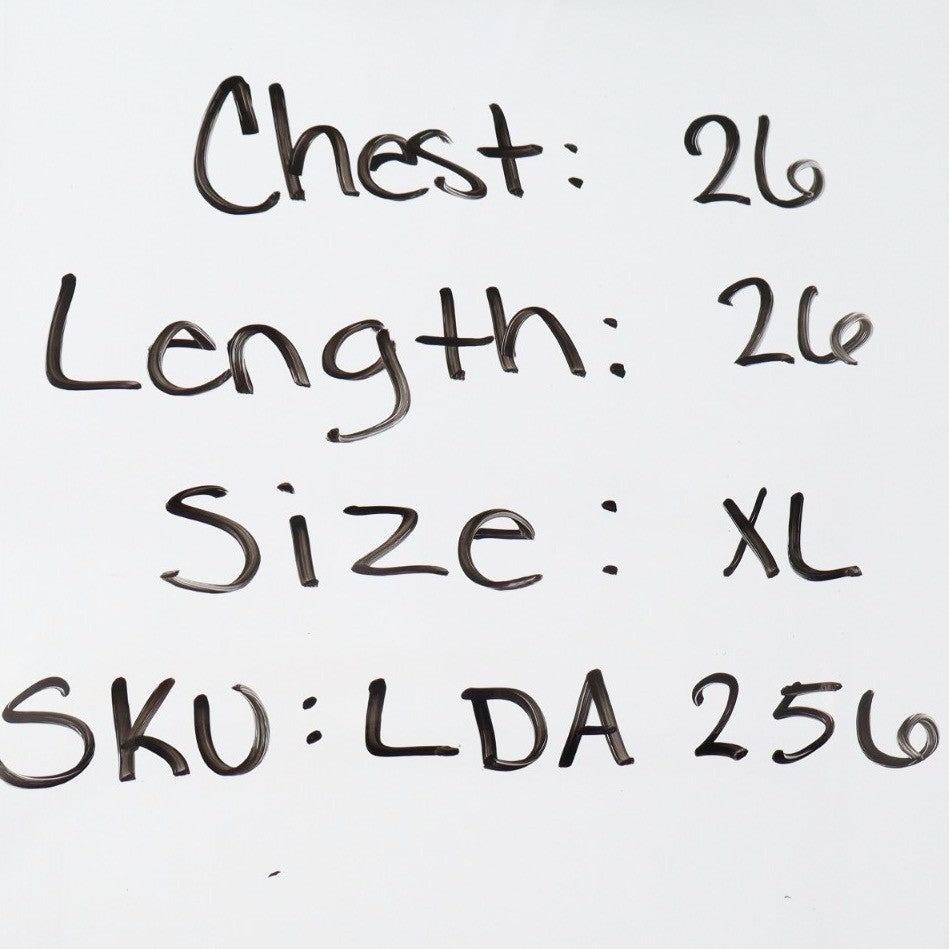 Chest: 26
Length: 26
Size: XL
SKU: LDA 256